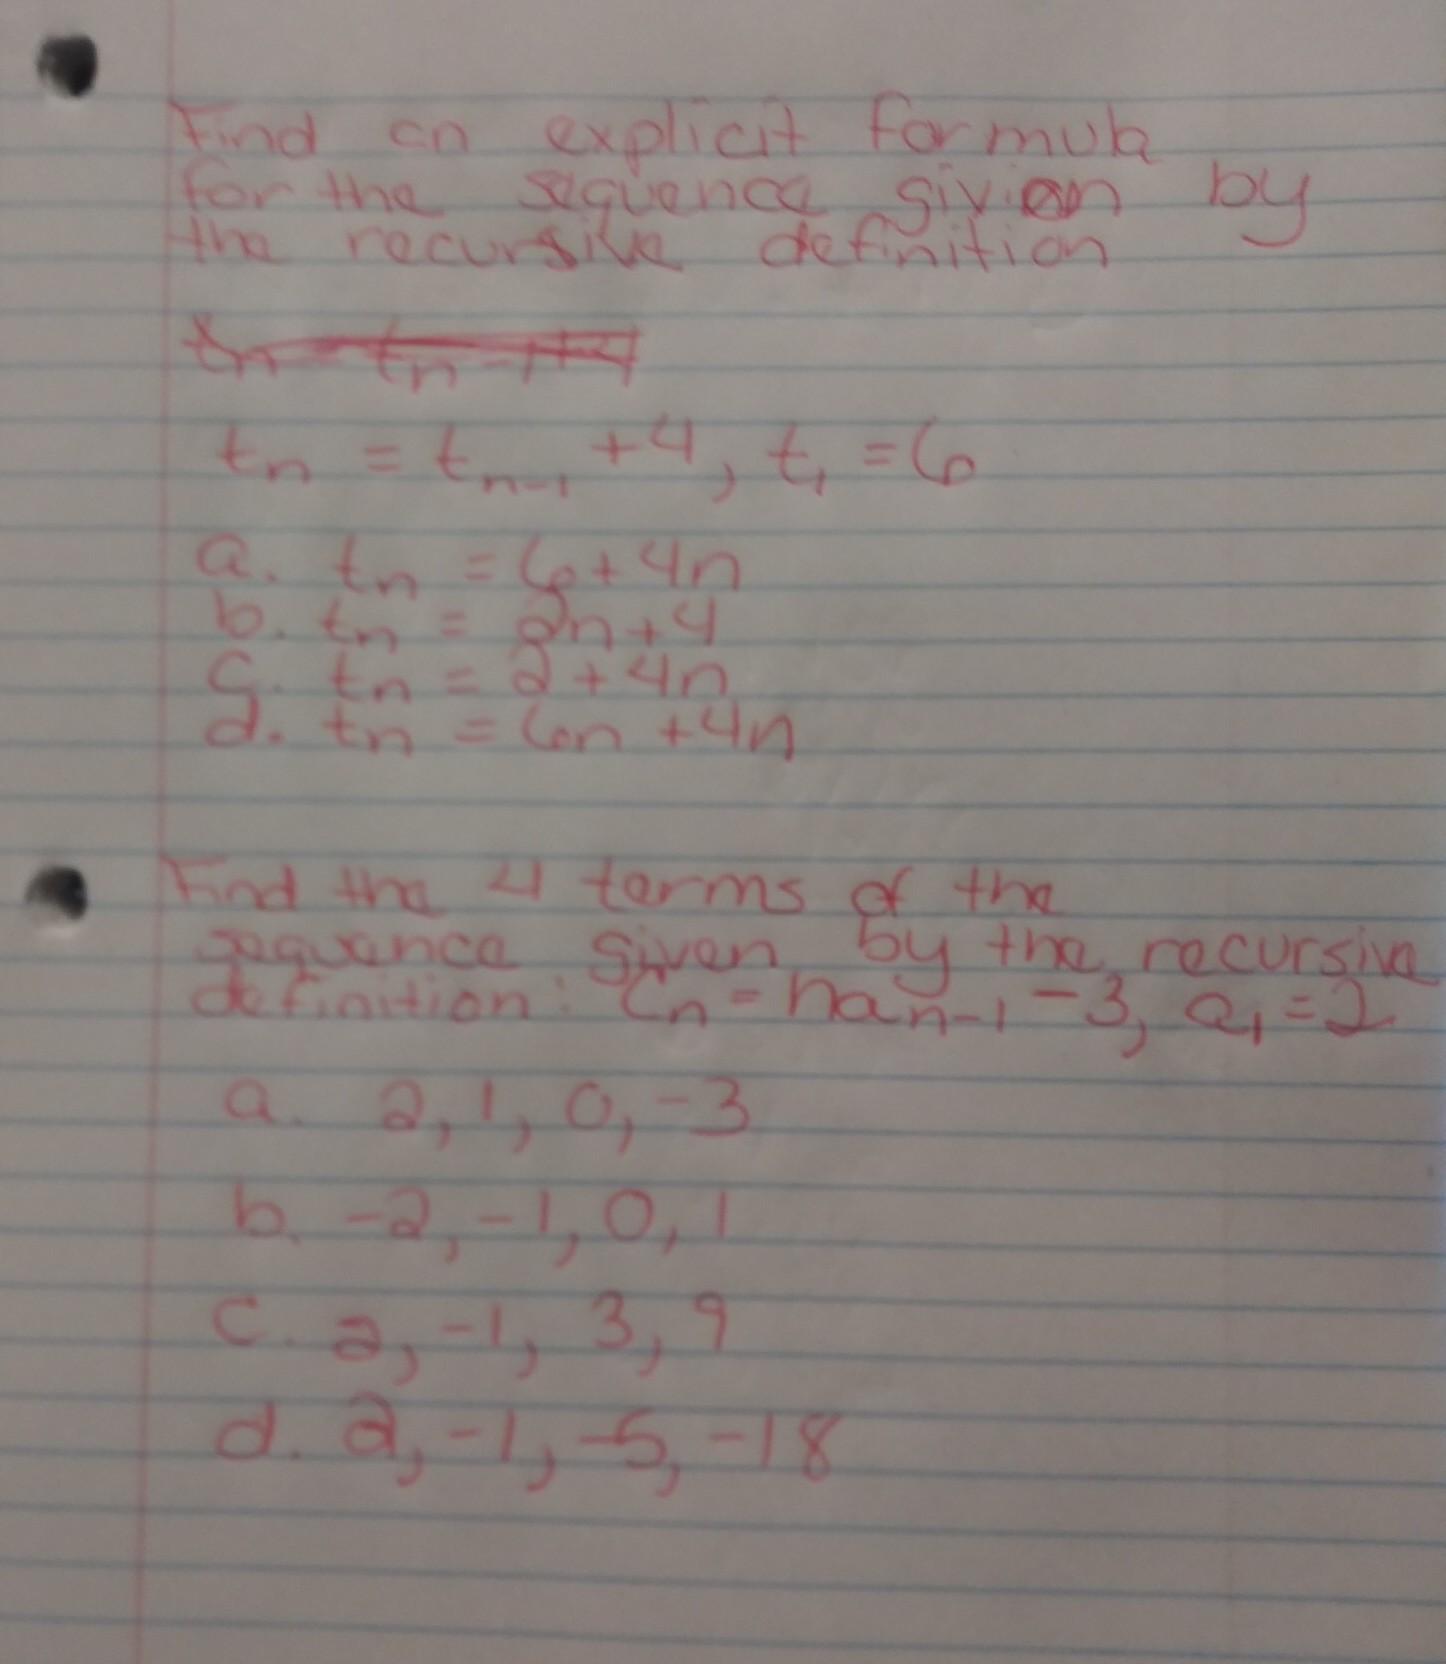 Find an explicit formula
for the sequence given by
the recursive definition
tn = tn-1+4
tn = tn-1 +4, t1 = 6
a. tn = 6+4n
b. tn = 2n+4
c. tn = 2+4n
d. tn = 6n +4n
Find the 4 terms of the
sequence given by the recursive
definition: Cn = nan-1 -3, a1=2
a. 2, 1, 0, -3
b. -2, -1, 0, 1
c. 2, -1, 3, 9
d. 2, -1, -5, -18